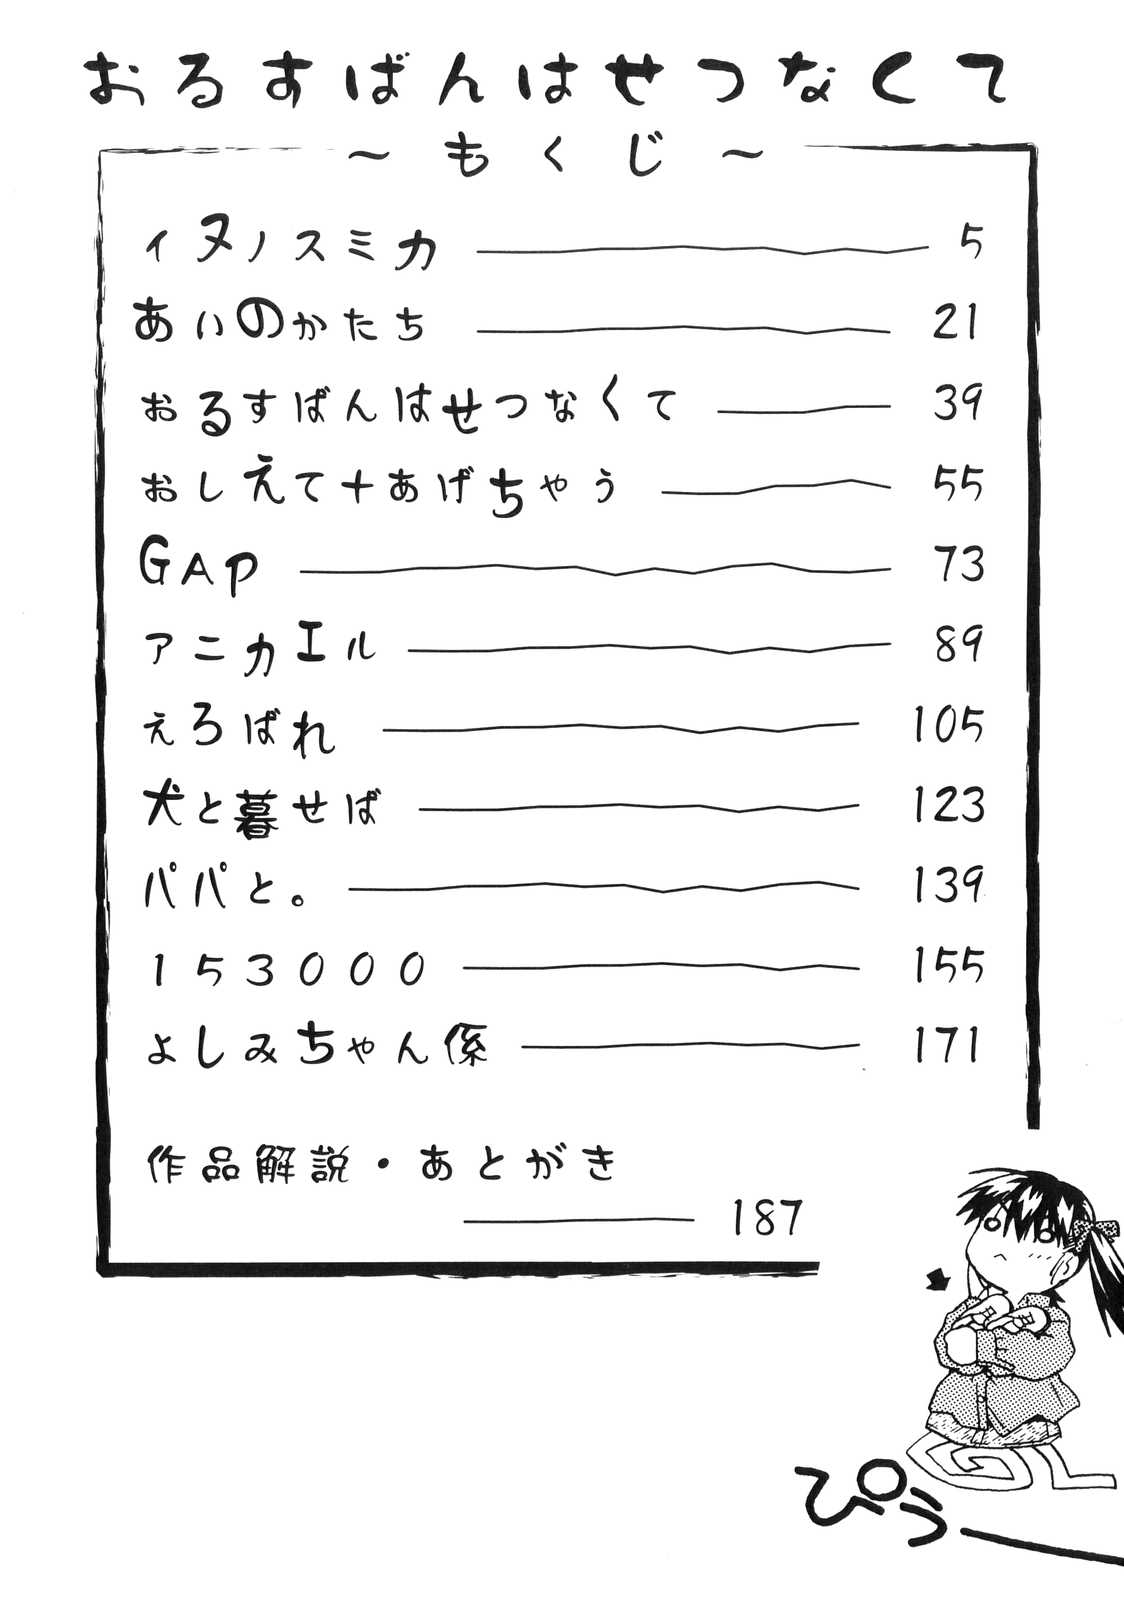 おるすばんはせつなくて
～もくじ～
イヌノスミカ 5
あいのかたち 21
おるすばんはせつなくて 39
おしえて＋あげちゃう 55
GAP 73
アニカエル 89
えろばれ 105
犬と暮せば 123
パパと。 139
153000 155
よしみちゃん係 171
作品解説・あとがき
187
ぴぅー